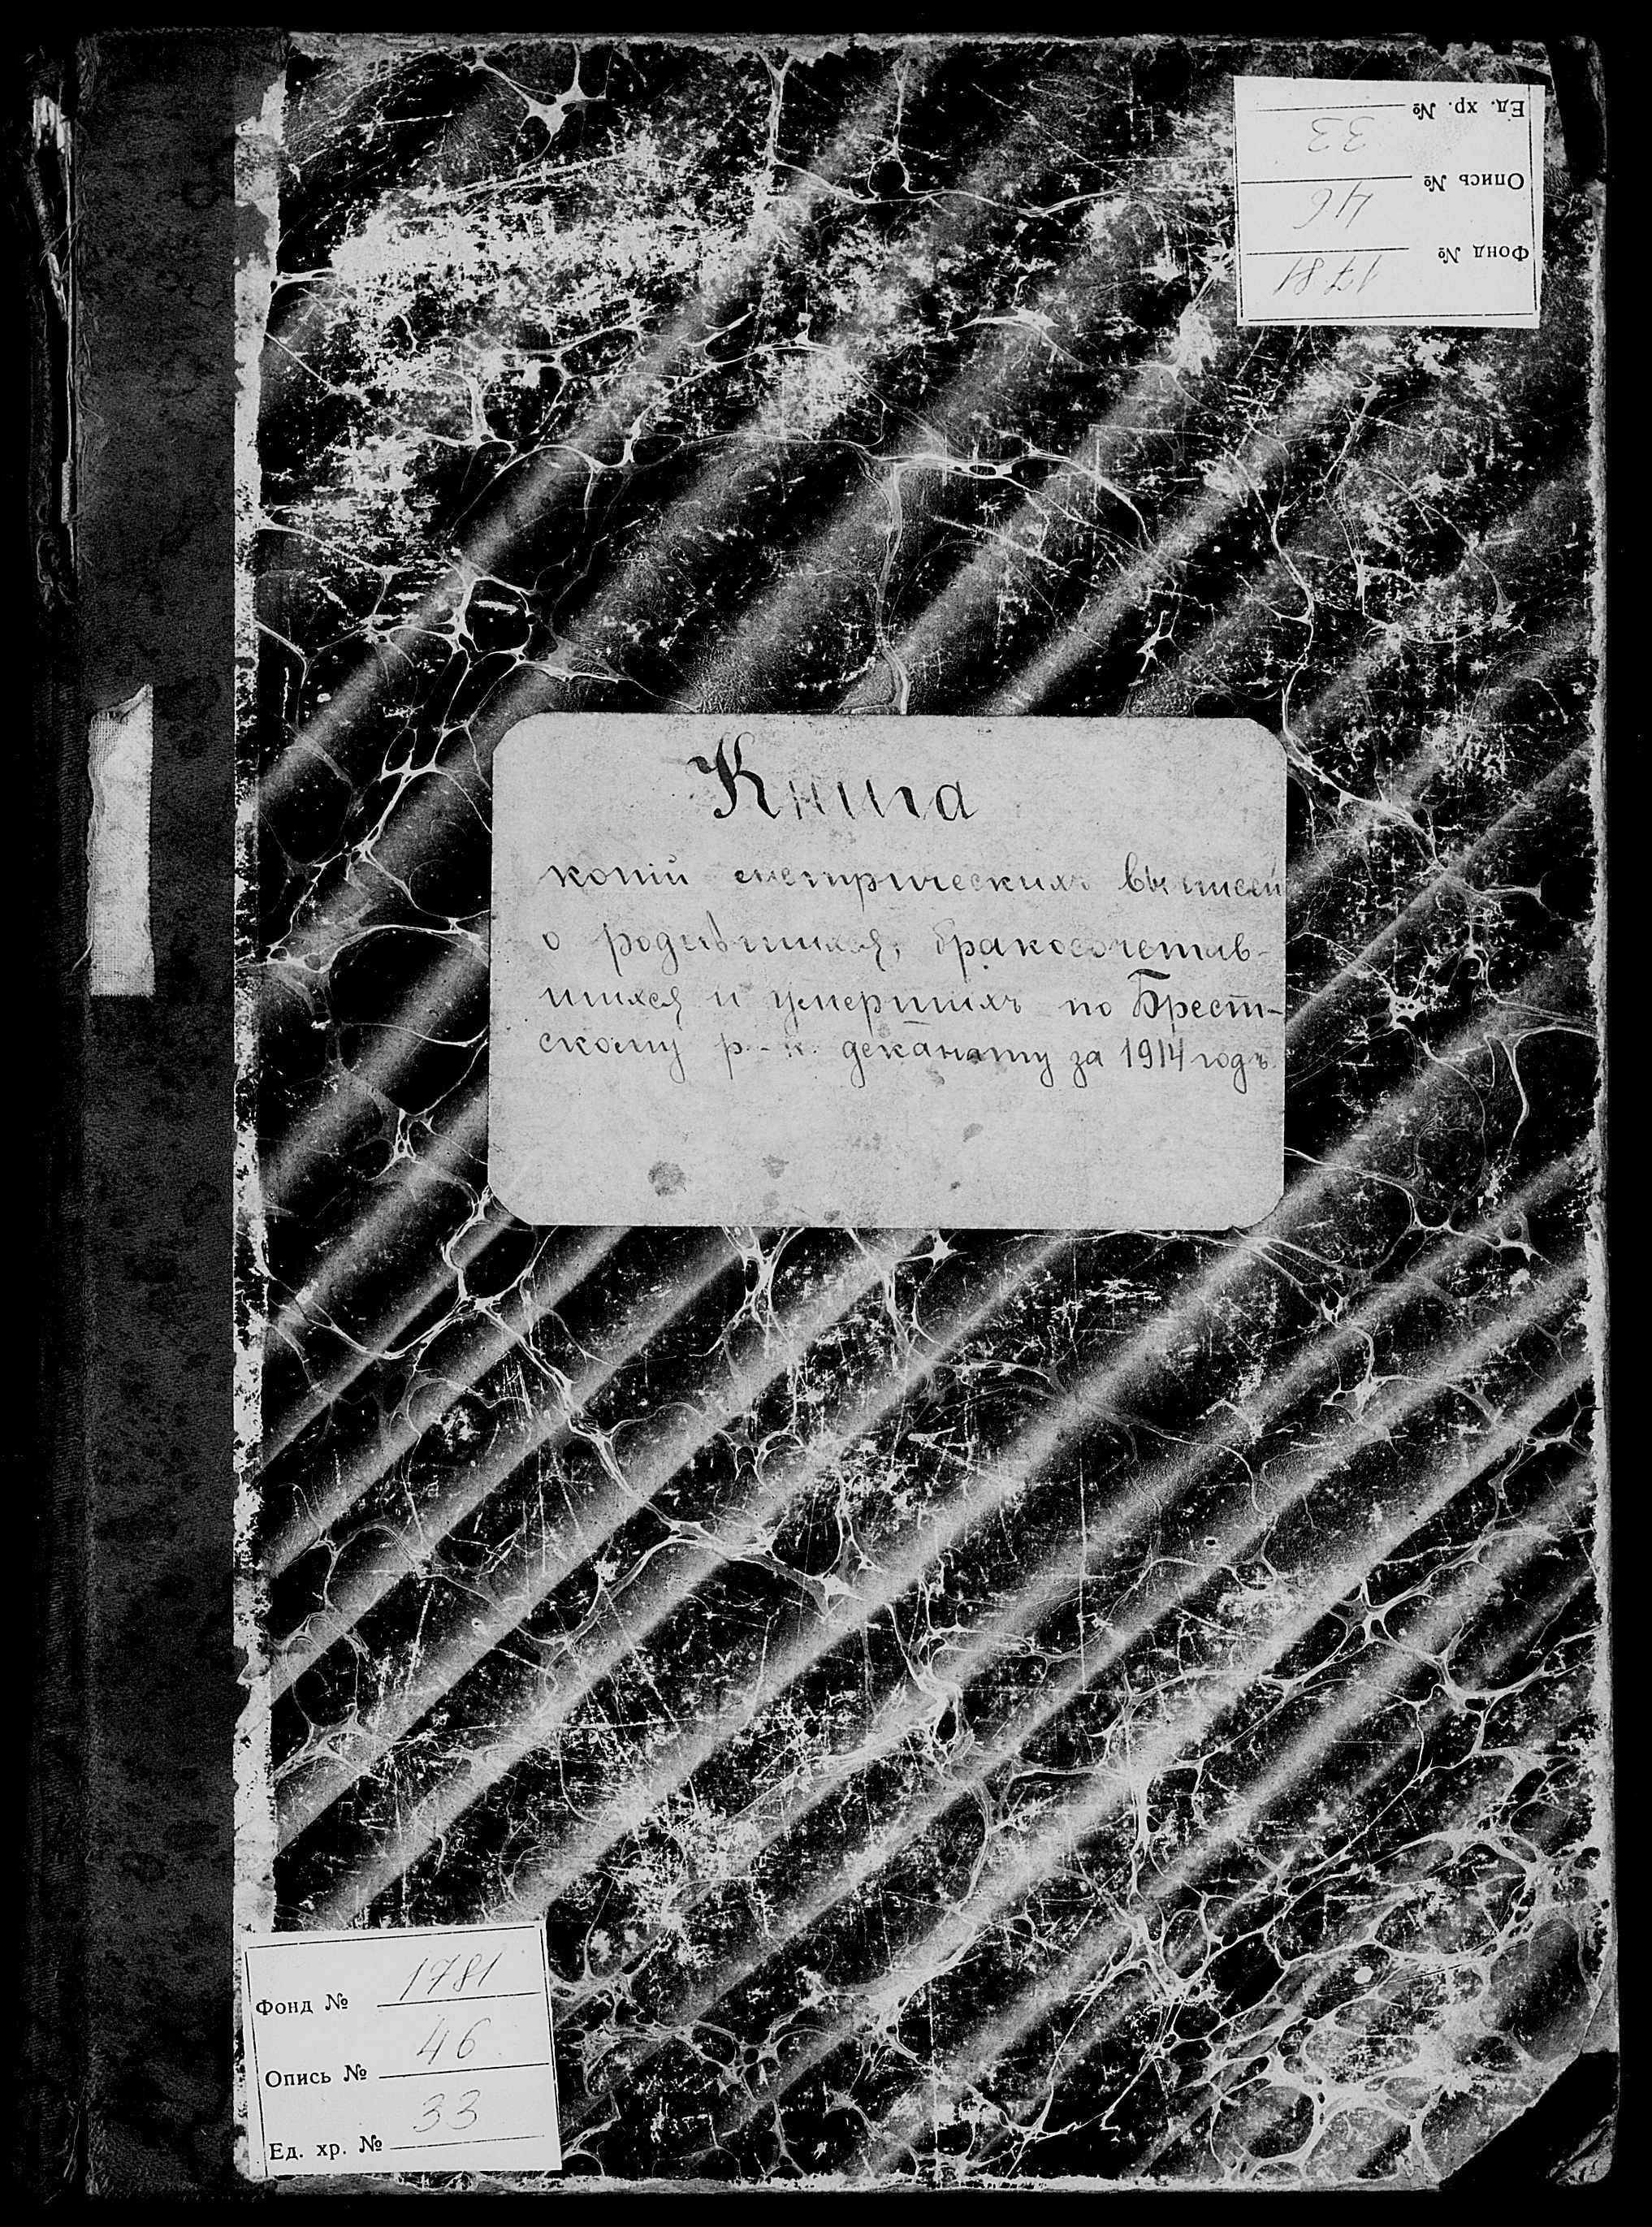 Ед. хр. № 33
Опись № 46
Фонд № 1781
Книга
копій метрическихъ выписей
о родившихся, бракосочетав-
шихся и умершихъ по Брест-
скому р.-к. деканату за 1914 годъ.
Фонд № 1781
Опись № 46
Ед. хр. № 33